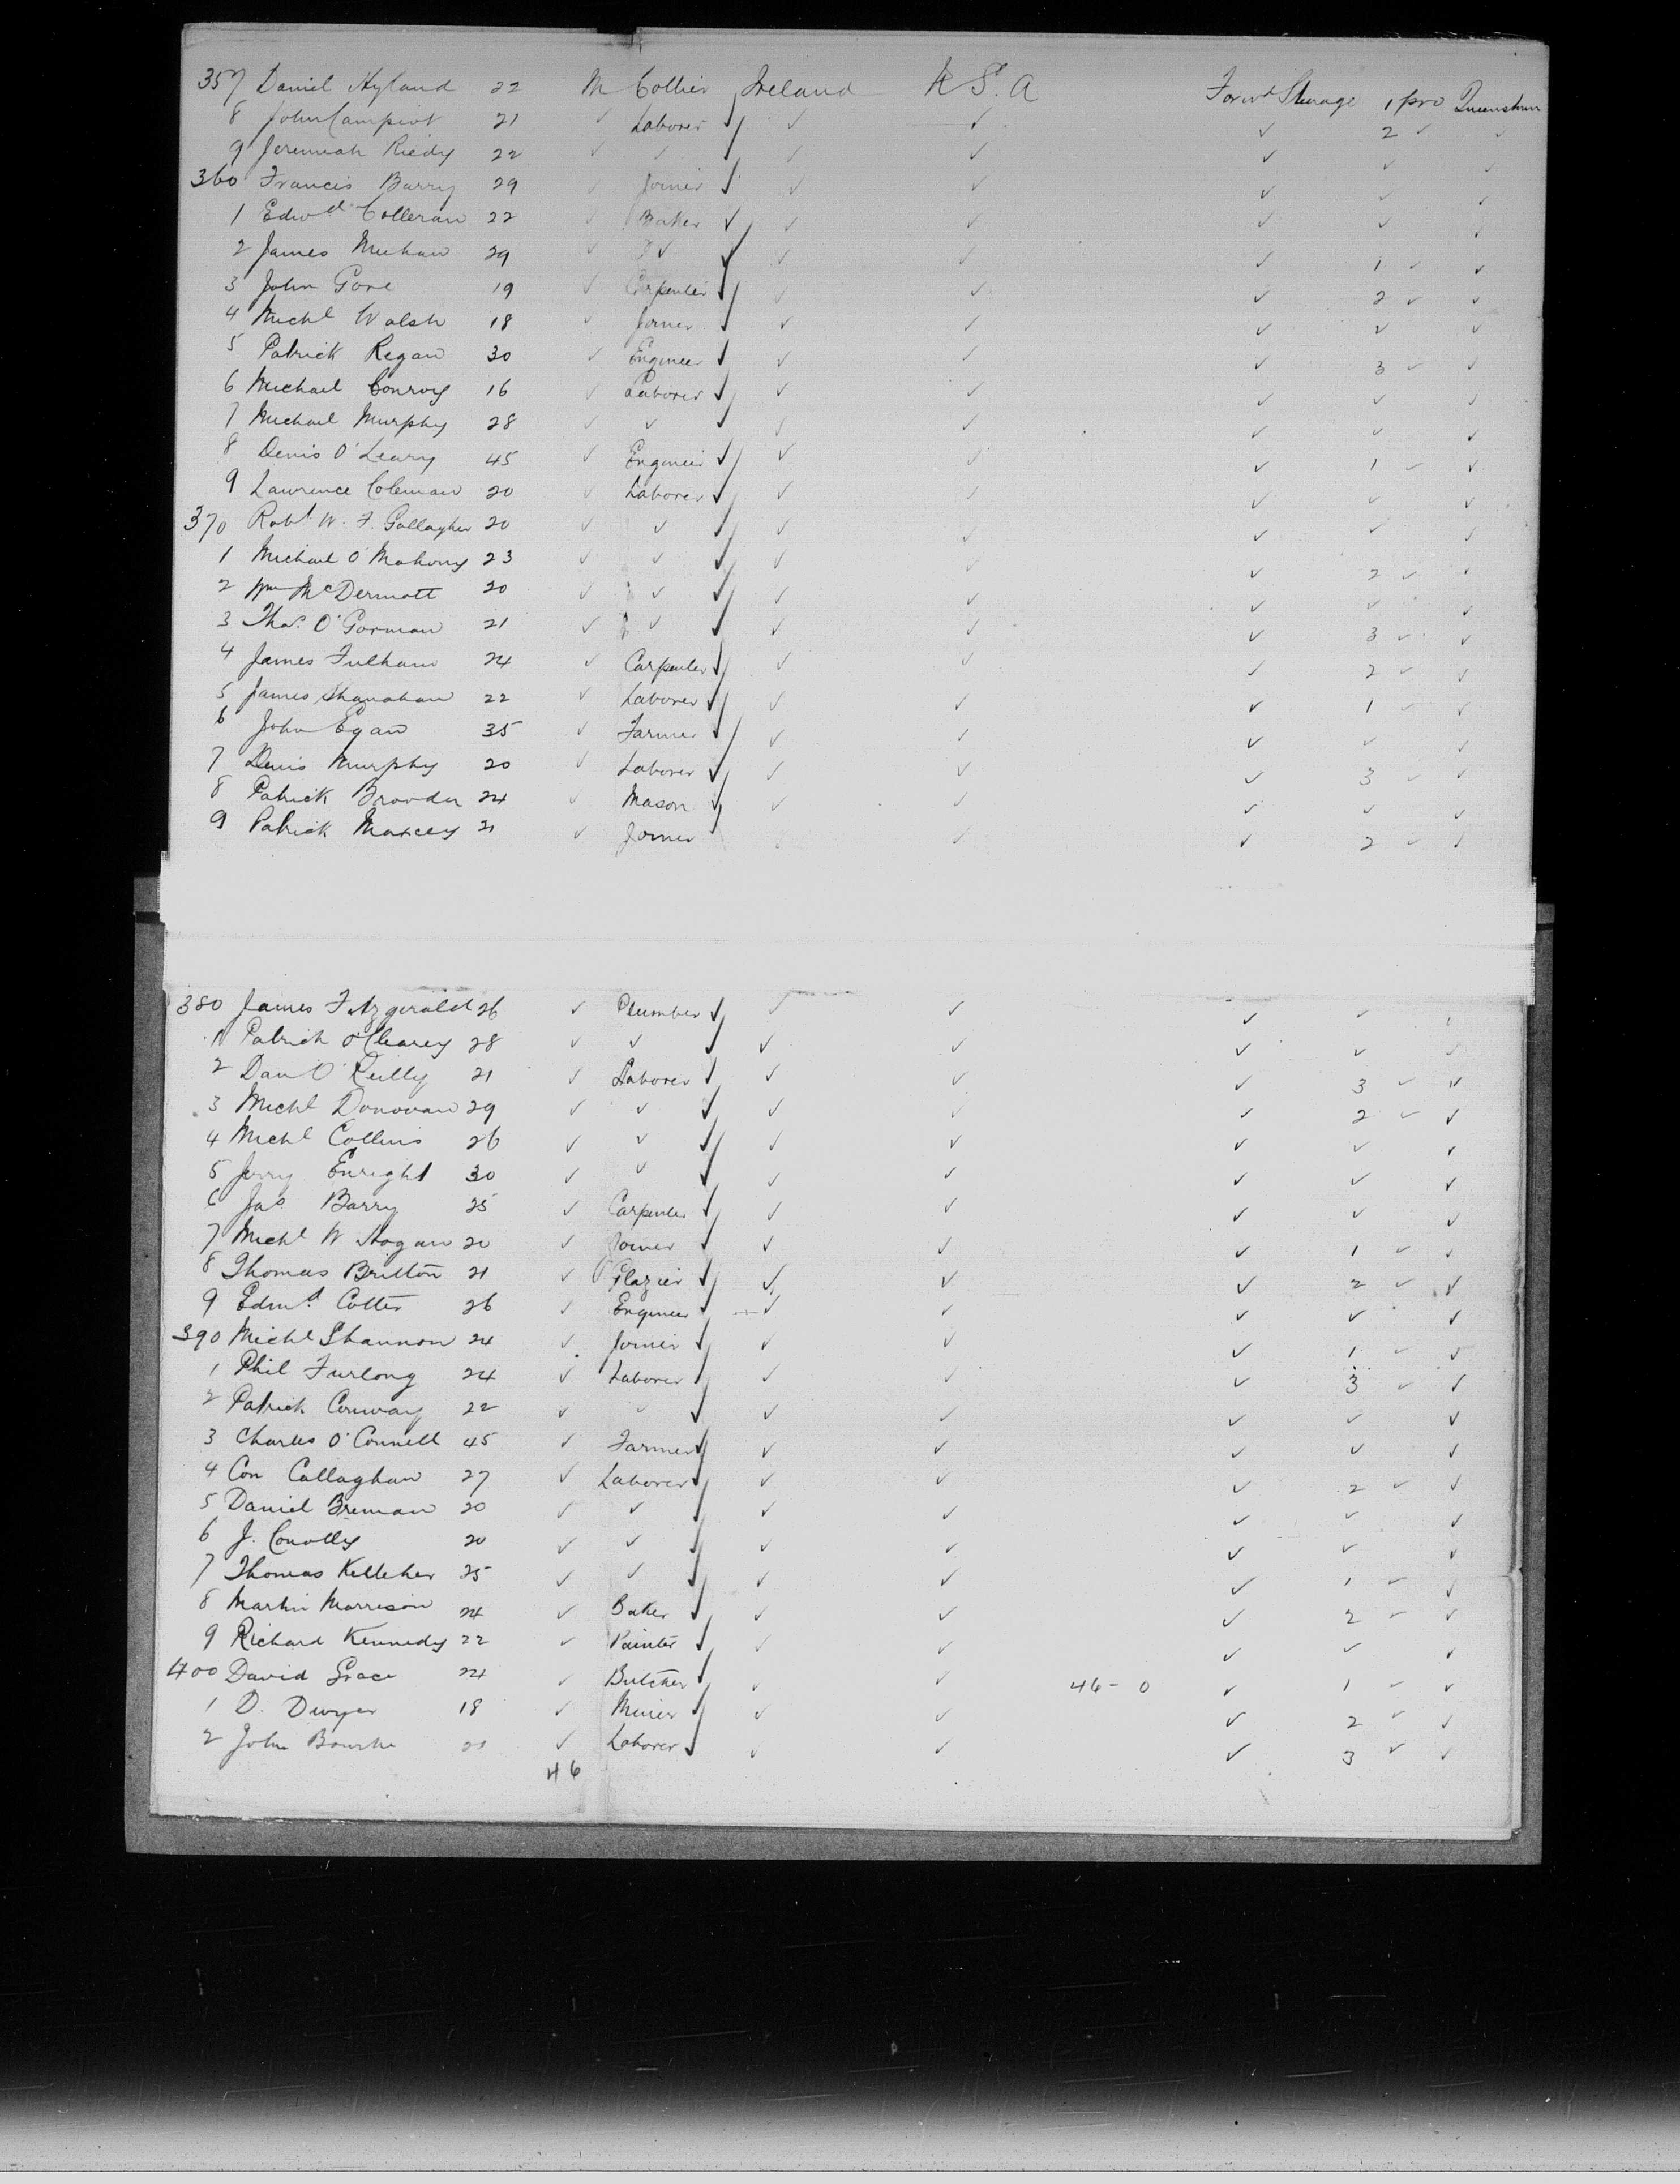 357 Daniel Hyland 22 M Collier Ireland U S. A Forwd Steerage 1 pro Queenstown
8 John Campion 21 ✓ Laborer ✓ ✓ ✓ ✓ 2 ✓ ✓
9 Jeremiah Riedy 22 ✓ ✓ ✓ ✓ ✓ ✓ ✓ ✓
360 Francis Barry 29 ✓ Joiner ✓ ✓ ✓ ✓ ✓ ✓
1 Edwd Colleran 22 ✓ Baker ✓ ✓ ✓ ✓ ✓ ✓
2 James Meehan 29 ✓ ✓ ✓ ✓ ✓ ✓ 1 ✓ ✓
3 John Gore 19 ✓ Carpenter ✓ ✓ ✓ ✓ 2 ✓ ✓
4 Michl Walsh 18 ✓ Joiner ✓ ✓ ✓ ✓ ✓ ✓
5 Patrick Regan 30 ✓ Engineer ✓ ✓ ✓ ✓ 3 ✓ ✓
6 Michael Conroy 16 ✓ Laborer ✓ ✓ ✓ ✓ ✓ ✓
7 Michael Murphy 28 ✓ ✓ ✓ ✓ ✓ ✓ ✓ ✓
8 Denis O'Leary 45 ✓ Engineer ✓ ✓ ✓ ✓ 1 ✓ ✓
9 Lawrence Coleman 20 ✓ Laborer ✓ ✓ ✓ ✓ ✓ ✓
370 Robt W. F. Gallagher 20 ✓ ✓ ✓ ✓ ✓ ✓ ✓ ✓
1 Michael O'Mahony 23 ✓ ✓ ✓ ✓ ✓ ✓ 2 ✓ ✓
2 Wm McDermott 20 ✓ ✓ ✓ ✓ ✓ ✓ ✓ ✓
3 Thos. O'Gorman 21 ✓ ✓ ✓ ✓ ✓ ✓ 3 ✓ ✓
4 James Fulham 24 ✓ Carpenter ✓ ✓ ✓ ✓ 2 ✓ ✓
5 James Shanahan 22 ✓ Laborer ✓ ✓ ✓ ✓ 1 ✓ ✓
6 John Egan 35 ✓ Farmer ✓ ✓ ✓ ✓ ✓ ✓
7 Denis Murphy 20 ✓ Laborer ✓ ✓ ✓ ✓ 3 ✓ ✓
8 Patrick Brooder 24 ✓ Mason ✓ ✓ ✓ ✓ ✓ ✓
9 Patrick 21 ✓ Joiner ✓ ✓ ✓ 2 ✓ ✓
380 James Fitzgerald 26 ✓ Plumber ✓ ✓ ✓ ✓ ✓ ✓
1 Patrick O'Cleary 28 ✓ ✓ ✓ ✓ ✓ ✓ ✓ ✓
2 Dan O'Reilly 21 ✓ Laborer ✓ ✓ ✓ ✓ 3 ✓ ✓
3 Michl Donovan 29 ✓ ✓ ✓ ✓ ✓ ✓ 2 ✓ ✓
4 Michl Collins 26 ✓ ✓ ✓ ✓ ✓ ✓ ✓ ✓
5 Jerry Enright 30 ✓ ✓ ✓ ✓ ✓ ✓ ✓ ✓
6 Jas Barry 25 ✓ Carpenter ✓ ✓ ✓ ✓ ✓ ✓
7 Michl W Hogan 20 ✓ Joiner ✓ ✓ ✓ ✓ 1 ✓ ✓
8 Thomas Britton 21 ✓ Glazier ✓ ✓ ✓ ✓ 2 ✓ ✓
9 Edmd. Cotter 26 ✓ Engineer ✓ ✓ ✓ ✓ ✓ ✓
390 Michl Shannon 24 ✓ Joiner ✓ ✓ ✓ ✓ 1 ✓ ✓
1 Phil Furlong 24 ✓ Laborer ✓ ✓ ✓ ✓ 3 ✓ ✓
2 Patrick Conway 22 ✓ ✓ ✓ ✓ ✓ ✓ ✓ ✓
3 Charles O'Connell 45 ✓ Farmer ✓ ✓ ✓ ✓ ✓ ✓
4 Con Callaghan 27 ✓ Laborer ✓ ✓ ✓ ✓ 2 ✓ ✓
5 Daniel Brennan 20 ✓ ✓ ✓ ✓ ✓ ✓ ✓ ✓
6 J. Conolly 20 ✓ ✓ ✓ ✓ ✓ ✓ ✓ ✓
7 Thomas Kelleher 25 ✓ ✓ ✓ ✓ ✓ ✓ 1 ✓ ✓
8 Martin Morrison 24 ✓ Baker ✓ ✓ ✓ ✓ 2 ✓ ✓
9 Richard Kennedy 22 ✓ Painter ✓ ✓ ✓ ✓ ✓ ✓
400 David Grace 24 ✓ Butcher ✓ ✓ ✓ 46 - 0 ✓ 1 ✓ ✓
1 D. Dwyer 18 ✓ Miner ✓ ✓ ✓ ✓ 2 ✓ ✓
2 John Bourke 21 ✓ Laborer ✓ ✓ ✓ ✓ 3 ✓ ✓
46